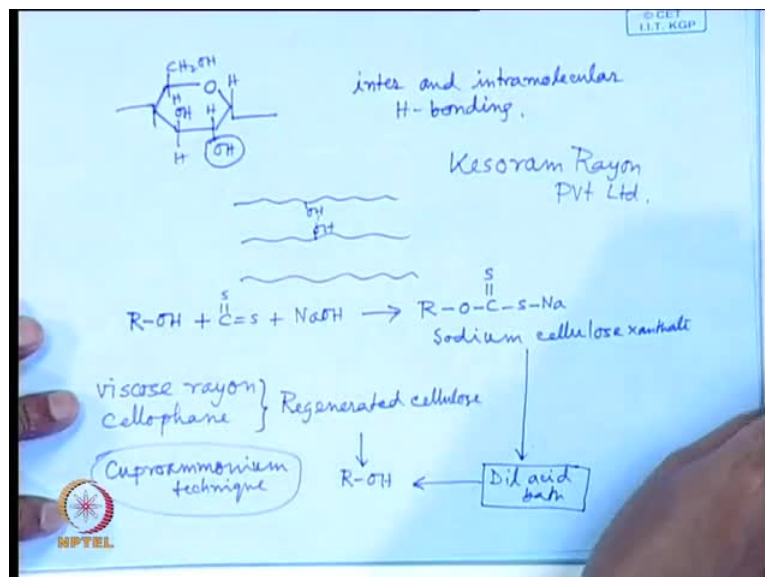 © CET
I.I.T. KGP
CH₂OH
O
H
H
OH
H
H
OH
inter and intramolecular
H-bonding.
Kesoram Rayon
Pvt Ltd.
OH
OH
S
S
R-OH + C=S + NaOH → R-O-C-S-Na
Sodium cellulose xanthate
viscose rayon
cellophane } Regenerated cellulose
Cuproammonium
technique
R-OH ← Dil acid
bath
NPTEL